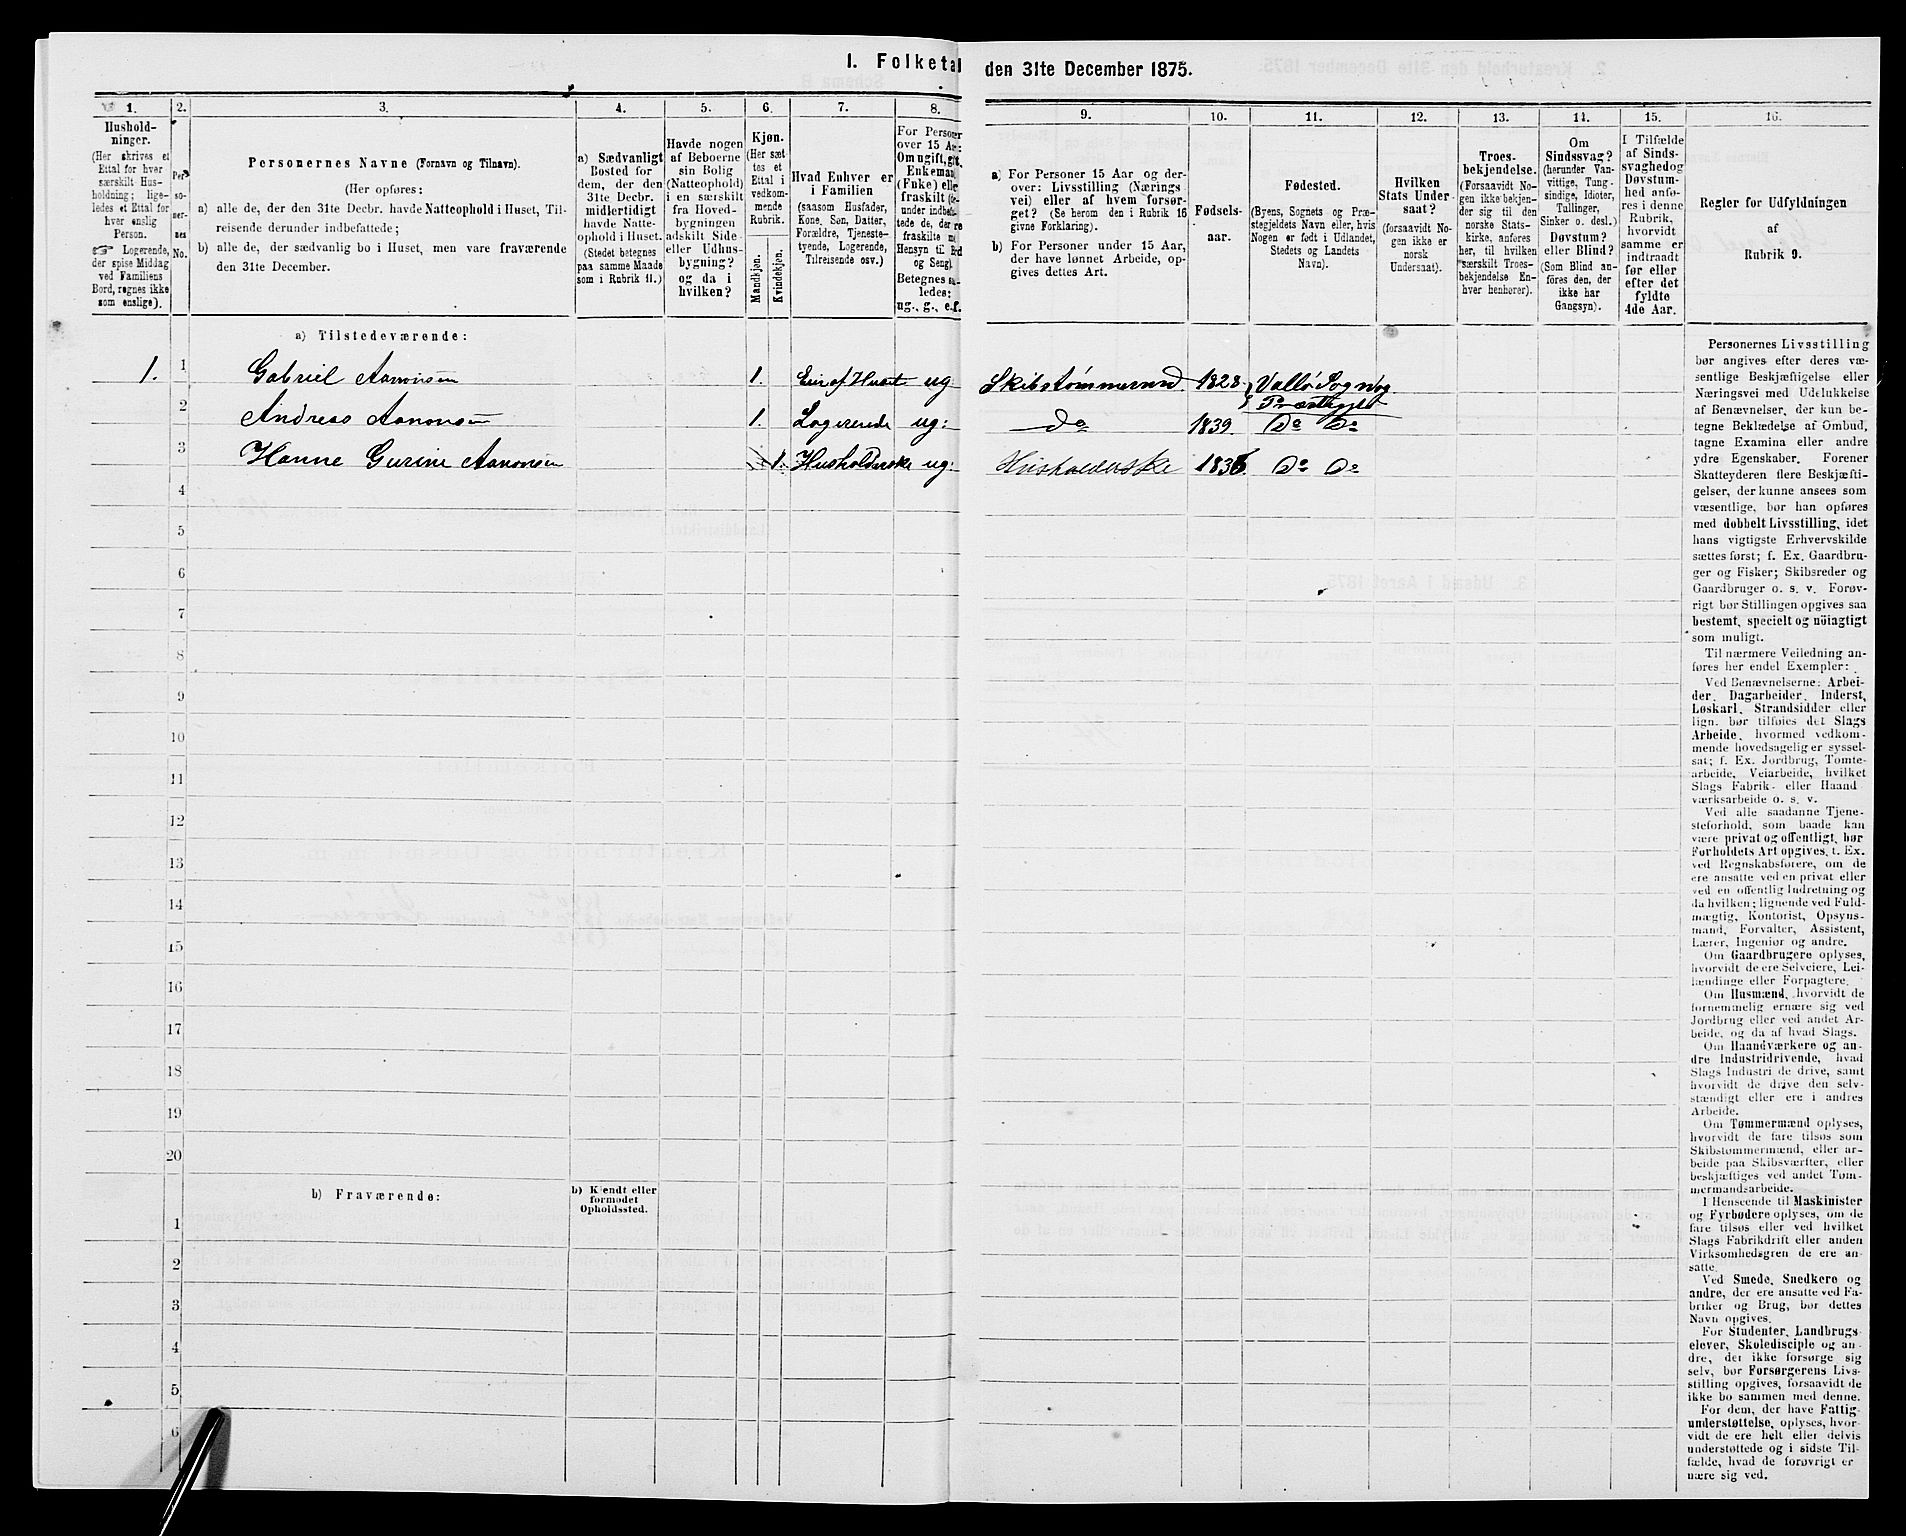 I. Folketal den 31te December 1875.
1. 2. 3. 4. 5. 6. 7. 8. 9. 10. 11. 12. 13. 14. 15. 16.
Hushold-
ninger.
(Her skrives et
Ettal for hver
særskilt Hus-
holdning; lige-
ledes et Ettal for
hver enslig
Person.
☞ Logerende,
der spise Middag
ved Familiens
Bord, regnes ikke
som enslige).
Per-
so-
ner-
nes
No.
Personernes Navne (Fornavn og Tilnavn).
(Her opføres:
a) alle de, der den 31te Decbr. havde Natteophold i Huset, Til-
reisende derunder indbefattede;
b) alle de, der sædvanlig bo i Huset, men vare fraværende
den 31te December.
a) Sædvanligt
Bosted for
dem, der den
31te Decbr.
midlertidigt
havde Natte-
ophold i Huset.
(Stedet betegnes
paa samme Maade
som i Rubrik 11.)
Havde nogen
af Beboerne
sin Bolig
(Natteophold)
i en særskilt
fra Hoved-
bygningen
adskilt Side-
eller Udhus-
bygning?
og da i
hvilken?
Kjøn.
(Her sæt-
tes et
Ettal i
vedkom-
mende
Rubrik.
Mandkjøn.
Kvindekjøn.
Hvad Enhver er
i Familien
(saasom Husfader,
Kone, Søn, Datter,
Forældre, Tjeneste-
tyende, Logerende,
Tilreisende osv.)
For Person
over 15 Aar:
Om ugift, gift,
Enkemand
(Enke) eller
fraskilt
under indbefat-
tede de, der
fraskilte
Hensyn til Bord
og Seng).
Betegnes saa-
ledes:
ug., g., e., f.
a) For Personer 15 Aar og der-
over: Livsstilling (Nærings
vei) eller af hvem forsør-
get? (Se herom den i Rubrik 16
givne Forklaring).
b) For Personer under 15 Aar,
der have lønnet Arbeide, op-
gives dettes Art.
Fødsels-
aar.
Fødested.
(Byens, Sognets og Præ-
stegjeldets Navn eller, hvis
Nogen er født i Udlandet,
Stedets og Landets
Navn).
Hvilken
Stats Under-
saat?
(forsaavidt No-
gen ikke er
norsk
Undersaat).
Troes-
bekjendelse.
(Forsaavidt No-
gen ikke bekjen-
der sig til den
norske Stats-
kirke, anføres
her, til hvilken
særskilt Troes-
bekjendelse En-
hver henhører).
Om
Sindssvag?
(herunder Van-
vittige, Tung-
sindige, Idioter,
Tullinger,
Sinker o. desl.)
Døvstum?
eller Blind?
(Som Blind an-
føres den, der
ikke har
Gangsyn).
I Tilfælde
af Sinds-
svaghed og
Døvstum-
hed anfø-
res i denne
Rubrik,
hvorvidt
samme er
indtraadt
før eller
efter det
fyldte
4de Aar.
Regler for Udfyldningen
af
Rubrik 9.
a) Tilstedeværende:
1. 1 Gabriel Aanonsen 1. Ein af Huset ug: Skibstømmermd 1828. Vallø Sogn og
Præstegjeld
2 Andreas Aanonsen 1. Logerende ug: do 1839. Do Do
3 Hanne Gurine Aanonsen 1. Husholderske ug: Husholderske 1836. Do Do
4
5
6
7
8
9
10
11
12
13
14
15
16
17
18
19
20
b) Fraværende:
b) Kjendt eller
formodet
Opholdssted.
1
2
3
4
5
6
Personernes Livsstilling
bør angives efter deres væ-
sentlige Beskjæftigelse eller
Næringsvei med Udelukkelse
af Benævnelser, der kun be-
tegne Beklædelse af Ombud,
tagne Examina eller andre
ydre Egenskaber. Forener
Skatteyderen flere Beskjæfti-
gelser, der kunne ansees som
væsentlige, bør han opføres
med dobbelt Livsstilling, idet
hans vigtigste Erhvervskilde
sættes først; f. Ex. Gaardbru-
ger og Fisker; Skibsreder og
Gaardbruger o. s. v. Forøv-
rigt bør Stillingen opgives saa
bestemt, specielt og nöiagtigt
som muligt.
Til nærmere Veiledning an-
føres her endel Exempler:
Ved Benævnelserne: Arbei-
der, Dagarbeider, Inderst,
Løskarl, Strandsidder eller
lign. bør tilføies det Slags
Arbeide, hvormed vedkom-
mende hovedsagelig er syssel-
sat; f. Ex. Jordbrug, Tomte-
arbeide, Veiarbeide, hvilket
Slags Fabrik- eller Haand
værksarbeide o. s. v.
Ved alle saadanne Tjene-
steforhold, som baade kan
være privat og offentligt, bør
Forholdets Art opgives, t. Ex.
ved Regnskabsførere, om de
ere ansatte ved en privat eller
ved en offentlig Indretning og
da hvilken; lignende ved Fuld-
mægtig, Kontorist, Opsyns-
mand, Forvalter, Assistent,
Lærer, Ingeniør og andre.
Om Gaardbrugere oplyses,
hvorvidt de ere Selveiere, Lei-
lændinge eller Forpagtere.
Om Husmænd, hvorvidt de
fornemmelig ernære sig ved
Jordbrug eller ved andet Ar-
beide, og da af hvad Slags.
Om Haandværkere og an-
dre Industridrivende, hvad
Slags Industri de drive, samt
hvorvidt de drive den selv-
stændigt eller ere i andres
Arbeide.
Om Tømmermænd oplyses,
hvorvidt de fare tilsøs som
Skibstømmermænd, eller ar-
beide paa Skibsværfter, eller
beskjæftiges ved andet Tøm-
mermandsarbeide.
I Henseende til Maskinister
og Fyrbødere oplyses, om de
fare tilsøs eller ved hvilket
Slags Fabrikdrift eller anden
Virksomhedsgren de ere an-
satte.
Ved Smede, Snedkere og
andre, der ere ansatte ved Fa-
briker og Brug, bør dettes
Navn opgives.
For Studenter, Landbrugs
elever, Skoledisciple og an-
dre, der ikke forsørge sig
selv, bør Forsørgerens Livs-
stilling opgives, forsaavidt de
ikke bo sammen med denne.
For dem, der have Fattig-
understøttelse, oplyses, hvor-
vidt de ere helt eller delvis
understøttede og i sidste Til-
fælde, hvad de forøvrigt er
nære sig ved.